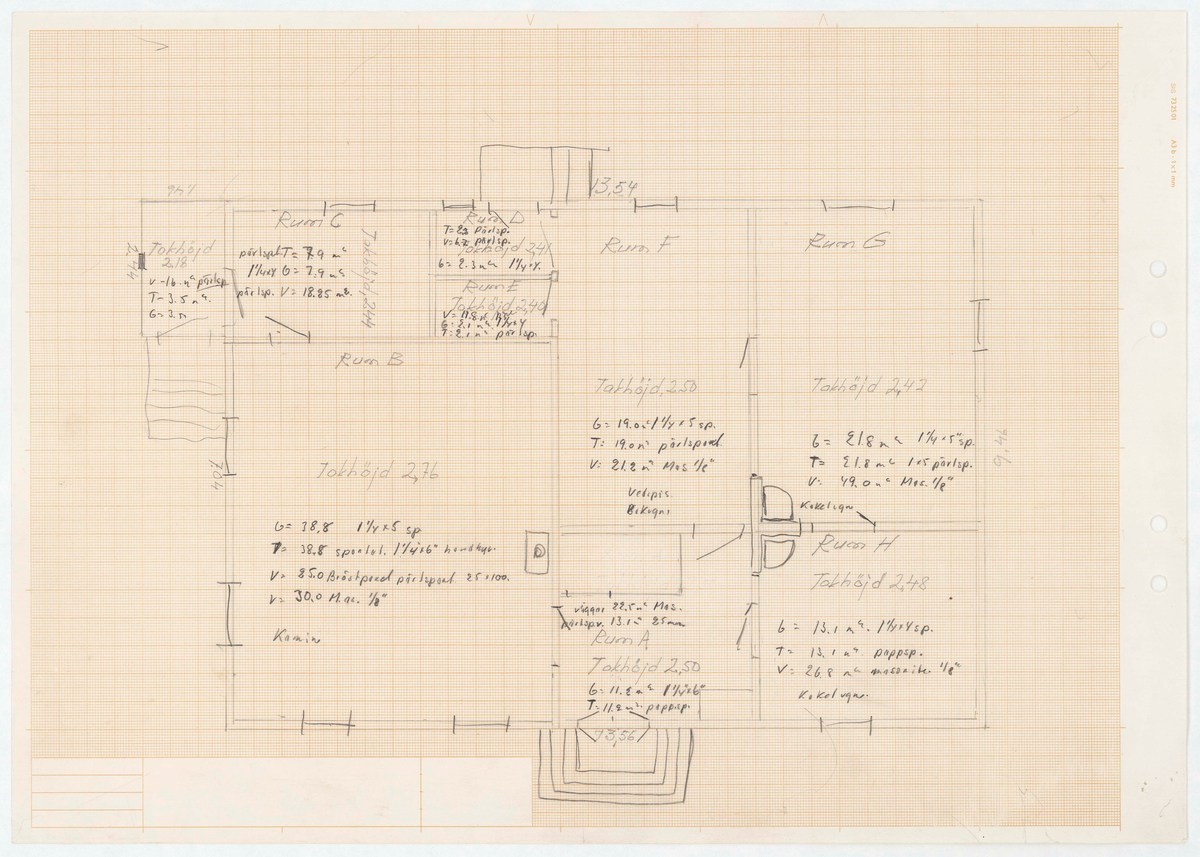 1,46
13,54
Rum C
pärlspl T= 7,9 m²
1¼x4 G= 7,9 m²
pärlsp. V= 18.85 m².
Takhöjd, 2,44
Takhöjd
2,18
V-16. m² pärlsp
T- 3.5 m².
G= 3.5
2,44
Rum D
T= 2.3 Pärlsp.
pärlsp.
Takhöjd 2,41
G= 2.3 m² 1¼x4.
Rum E
Takhöjd 2,40
V= 11.8
G= 2.1 m² 1¼x4
T= 2.1 m² pärlsp.
Rum F
Takhöjd, 2,50
G= 19.0 m² 1¼x5 sp.
T= 19.0 m² pärlspont
V= 21.2 m² Mas ⅛"
Vedspis.
Bakugn
Rum G
Takhöjd 2,42
G= 21.8 m² 1¼x5" sp.
T= 21.8 m² 1x5 pärlsp.
V= 49.0 m² Mas. ⅛"
Kakelugn
9,46
Rum B
Takhöjd 2,76
7,04
G= 38,8 1¼x5 sp
T= 38,8 spontat. 1¼"x6" handhyv.
V= 25.0 Bröstpanel pärlspont 25x100.
V= 30,0 Mas. ⅛"
Kamin
väggar 22.5 m² Mas.
pärlspv. 13.1 m² 25mm
Rum A
Takhöjd 2,50
G= 11.2 m² 1¼"x6"
T= 11.2 m². pappsp.
13,56
Rum H
Takhöjd 2,48
G= 13.1 m². 1¼x4 sp.
T= 13.1 m² pappsp.
V= 26.8 m² masonite. ⅛"
Kakelugn.
A3 b - 1x1 mm